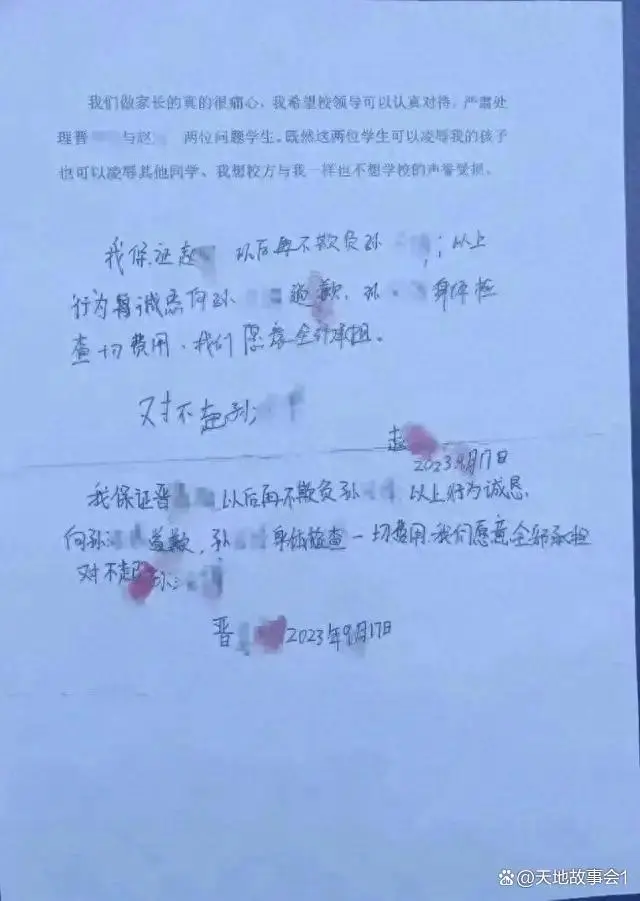 我们做家长的真的很痛心，我希望校领导可以认真对待，严肃处
理晋 与赵 两位问题学生。既然这两位学生可以凌辱我的孩子
也可以凌辱其他同学、我想校方与我一样也不想学校的声誉受损。
我保证赵 以后再不欺负孙 ；以上
行为 诚恳向孙 道歉，孙 身体检
查一切费用、我们愿意全部承担。
对不起孙
赵
2023.9月17日
我保证晋 以后再不欺负孙 以上行为诚恳
向孙 道歉，孙 身体检查一切费用.我们愿意全部承担
对不起孙
晋 2023年9月17日
@天地故事会1